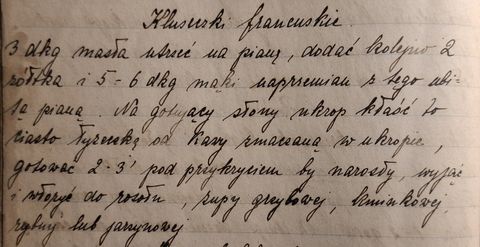 Kluseczki francuskie.
3 dkg masła utrzeć na pianę, dodać kolejno 2
żółtka i 5-6 dkg mąki naprzemian z tego ubi-
tą pianą. Na gotujący słony ukrop kłaść to
ciasto łyżeczką od kawy zmaczaną w ukropie,
gotować 2-3' pod przykryciem by narosły, wyjąć
i włożyć do rosołu, zupy grzybowej, kminkowej,
rybnej lub jarzynowej